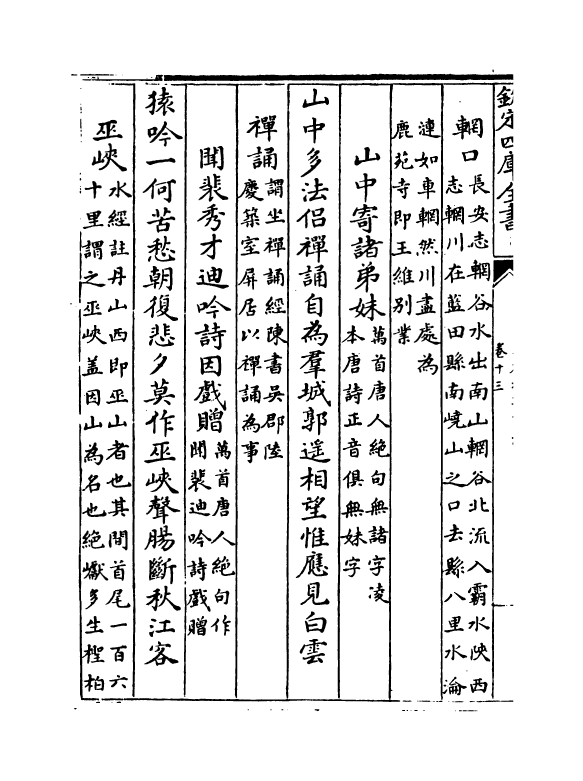 欽定四庫全書
卷十三
輞口長安志輞谷水出南山輞谷北流入霸水陜西
志輞川在藍田縣南嶢山之口去縣八里水淪
漣如車輞然川盡處為
鹿苑寺即王維別業
山中寄諸弟妹萬首唐人絶句無諸字凌
本唐詩正音俱無妹字
山中多法侶禪誦自為羣城郭遥相望惟應見白雲
禪誦謂坐禪誦經陳書吳郡陸
慶築室屏居以禪誦為事
聞裴秀才迪吟詩因戲贈萬首唐人絶句作
聞裴迪吟詩戲贈
猿吟一何苦愁朝復悲夕莫作巫峽聲腸斷秋江客
巫峽水經註丹山西即巫山者也其間首尾一百六
十里謂之巫峽蓋因山為名也絶巘多生檉柏